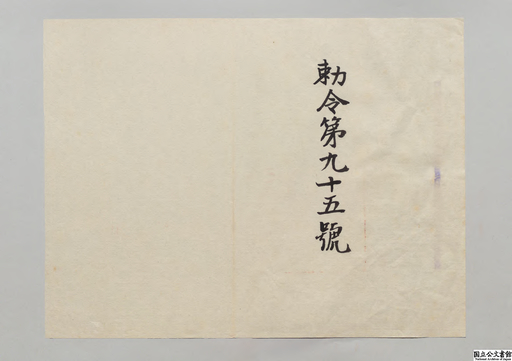 勅令第九十五號
国立公文書館
National Archives of Japan